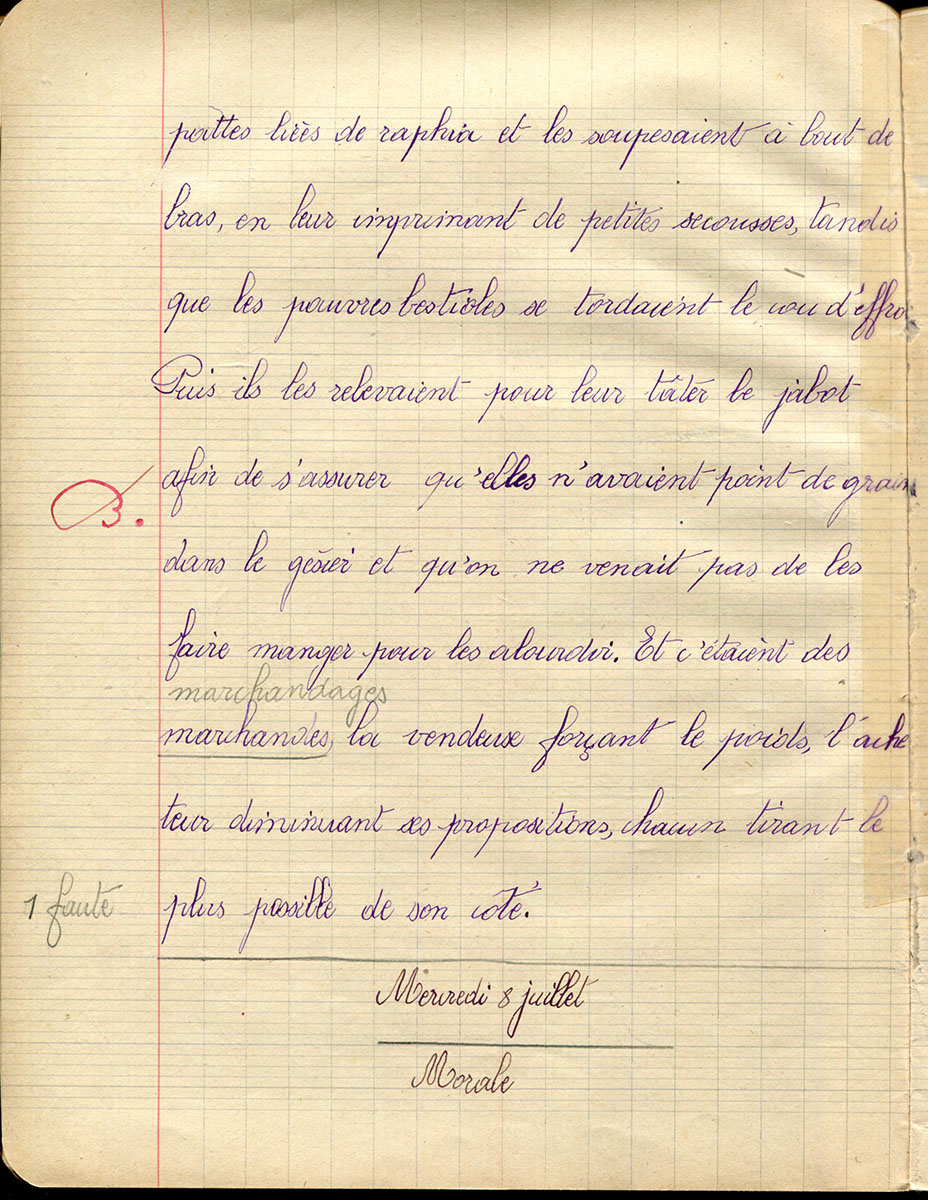 pattes liées de raphia et les soupesaient à bout de
bras, en leur imprimant de petites secousses, tandis
que les pauvres bestioles se tordaient le cou d'effro
Puis ils les relevaient pour leur tâter le jabot
afin de s'assurer qu'elles n'avaient point de grain
3.
dans le gésier et qu'on ne venait pas de les
faire manger pour les alourdir. Et c'étaient des
marchandages
marchandes, la vendeuse forçant le poids, l'ache
teur diminuant ses propositions, chacun tirant le
1 faute plus possible de son côté.
Mercredi 8 juillet
Morale